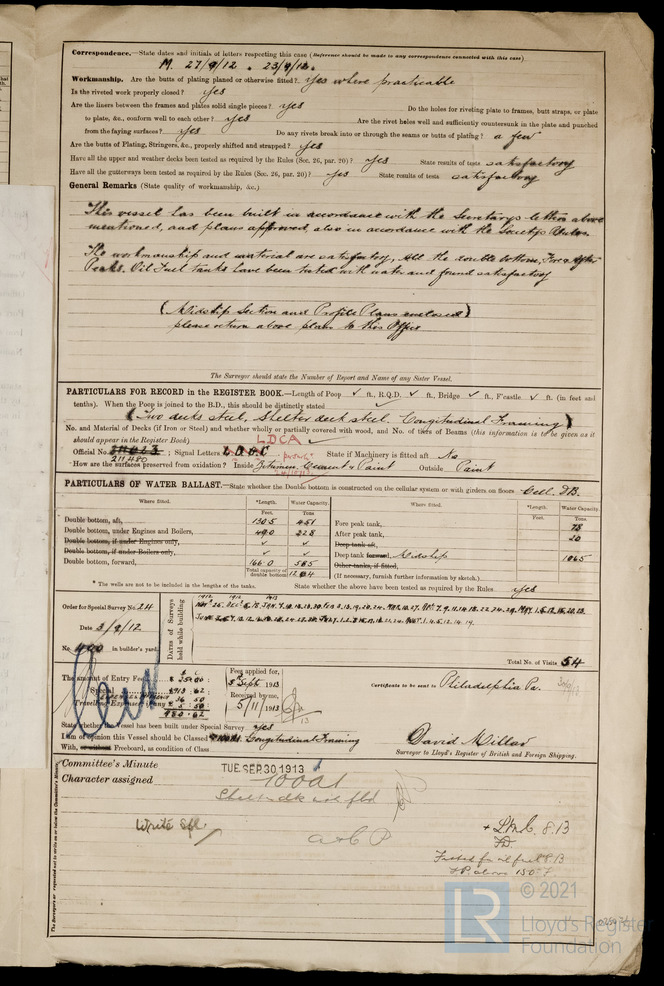 Correspondence.—State dates and initials of letters respecting this case (Reference should be made to any correspondence connected with this case)
M. 27/9/12 . 23/9/12.
Workmanship. Are the butts of plating planed or otherwise fitted? yes where practicable
Is the riveted work properly closed? yes
Are the liners between the frames and plates solid single pieces? yes Do the holes for riveting plate to frames, butt straps, or plate
to plate, &c., conform well to each other? yes Are the rivet holes well and sufficiently countersunk in the plate and punched
from the faying surfaces? yes Do any rivets break into or through the seams or butts of plating? a few
Are the butts of Plating, Stringers, &c., properly shifted and strapped? yes
Have all the upper and weather decks been tested as required by the Rules (Sec. 26, par. 20)? yes State results of tests satisfactory
Have all the gutterways been tested as required by the Rules (Sec. 26, par. 20)? yes State results of tests satisfactory
General Remarks (State quality of workmanship, &c.)
This vessel has been built in accordance with the Secretary's letters above
mentioned, and plans approved, also in accordance with the Society's Rules.
The workmanship and material are satisfactory, All the double bottom, Fore & After
Peaks. Oil Fuel tanks have been tested with water and found satisfactory
(Midship Section and Profile Plans enclosed)
please return above plans to this Office
The Surveyor should state the Number of Report and Name of any Sister Vessel.
PARTICULARS FOR RECORD in the REGISTER BOOK.—Length of Poop ✓ ft., R.Q.D. ✓ ft., Bridge ✓ ft., F'castle ✓ ft. (in feet and
tenths). When the Poop is joined to the B.D., this should be distinctly stated
(Two decks steel, Shelter deck steel. Longitudinal Framing)
No. and Material of Decks (if Iron or Steel) and whether wholly or partially covered with wood, and No. of tiers of Beams (this information is to be given as it
should appear in the Register Book) LDCA ✓
Official No. 211480 ; Signal Letters State if Machinery is fitted aft No
How are the surfaces preserved from oxidation? Inside Bitumen, Cement & Paint Outside Paint
PARTICULARS OF WATER BALLAST.—State whether the Double bottom is constructed on the cellular system or with girders on floors Cell. DB.
Where fitted. *Length. Water Capacity. Where fitted. *Length. Water Capacity.
Feet. Tons Feet. Tons
Double bottom, aft, 130.5 451 Fore peak tank, 75
Double bottom, under Engines and Boilers, 49.0 228 After peak tank, 20
Double bottom, if under Engines only, ✓ ✓ Deep tank aft,
Double bottom, if under Boilers only, ✓ ✓ Deep tank forward, Midship 1065
Double bottom, forward, 166.0 585 Other tanks, if fitted,
Total capacity of double bottom 1264 (If necessary, furnish further information by sketch.)
* The wells are not to be included in the lengths of the tanks. State whether the above have been tested as required by the Rules yes
Order for Special Survey No. 24
Date 3/9/12
No. 400 in builder's yard.
DATES of Surveys held while building
1912 1912 1913
Total No. of Visits 54
The amount of Entry Fee
Special
Travelling Expenses, if any
Fees applied for,
5 Sept 1913
Received by me,
5/11/1913
Certificate to be sent to Philadelphia Pa. 30/9/13
State whether the Vessel has been built under Special Survey yes
I am of opinion this Vessel should be Classed Longitudinal Framing
With, or without Freeboard, as condition of Class
David Millar
Surveyor to Lloyd's Register of British and Foreign Shipping.
Committee's Minute TUE. SEP. 30 1913
Character assigned 100A1
Write Spl.
+ LMC. 8.13
Fitted for oil fuel 8.13
F.P. above 150°F.
The Surveyors are requested not to write on or below the Committee's Minute.
LR © 2021
Lloyd's Register
Foundation